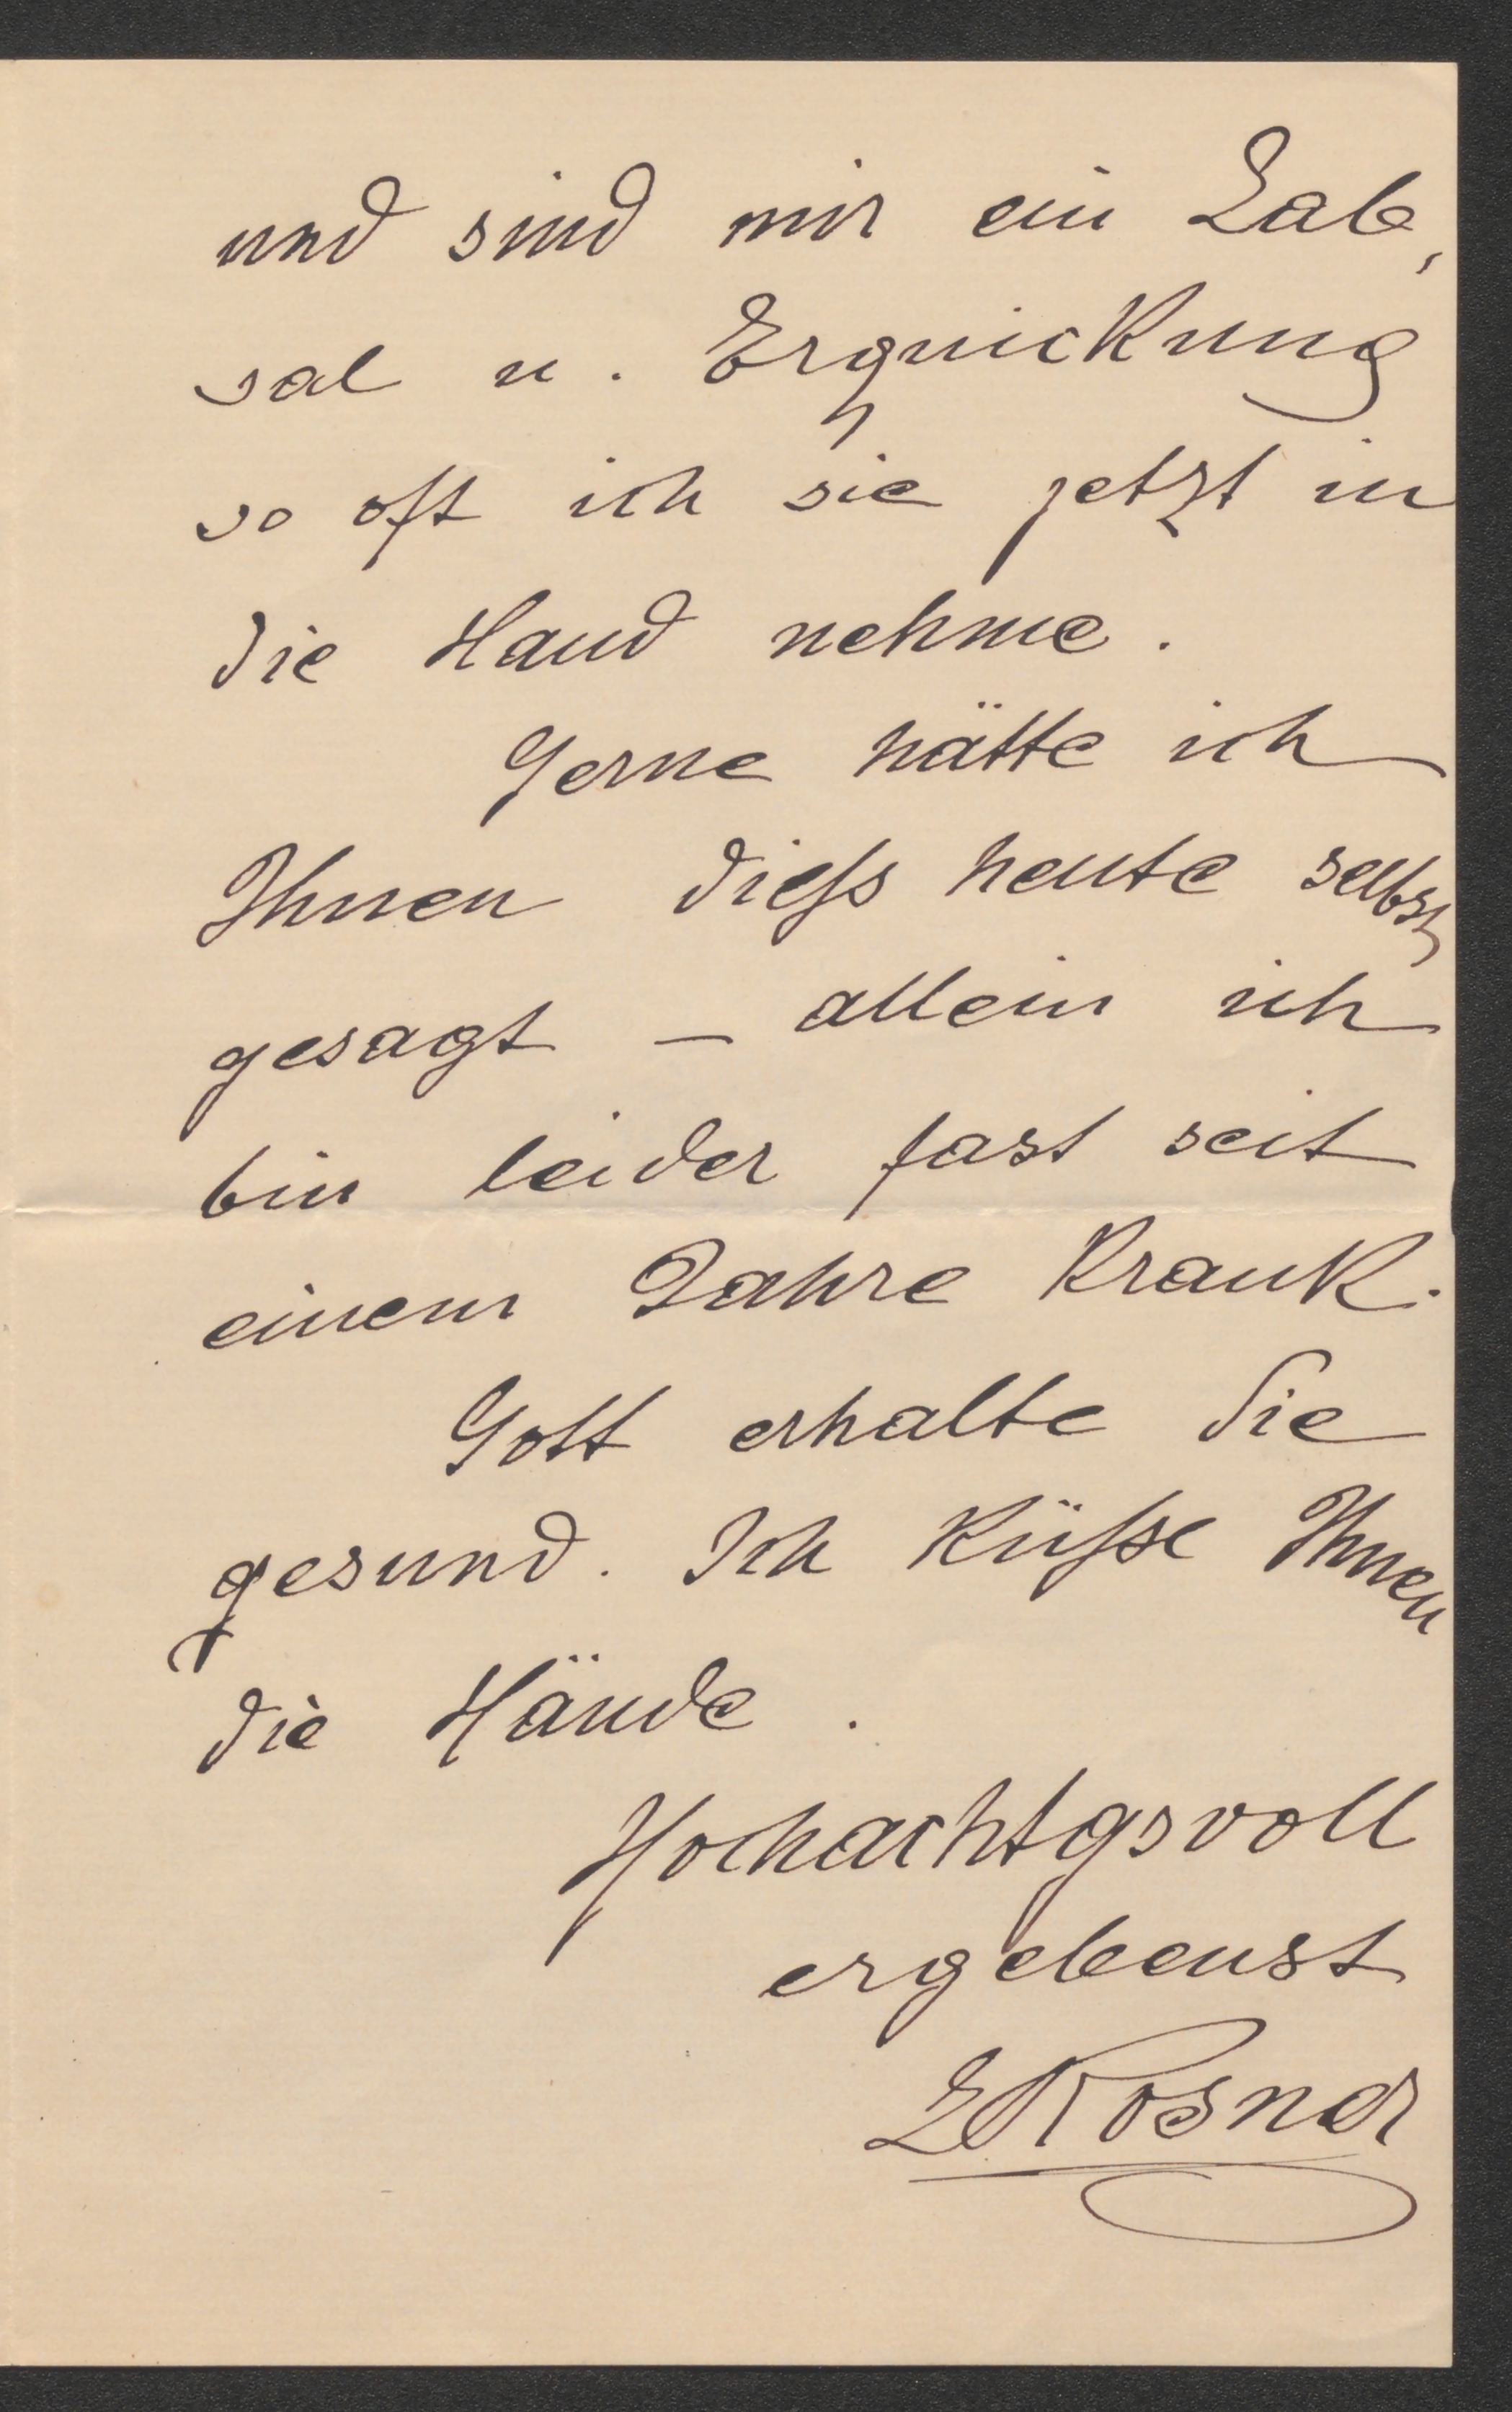 und sind mir ein Lab,
sal u. Erquickung
so oft ich sie jetzt in
die Hand nehme.
Gerne hätte ich
Ihnen dieß heute selbst
gesagt – allein ich
bin leider fast seit
einem Jahre krank.
Gott erhalte Sie
gesund. Ich küsse Ihnen
die Hände.
Hochachtgsvoll
ergebenst
LRosner